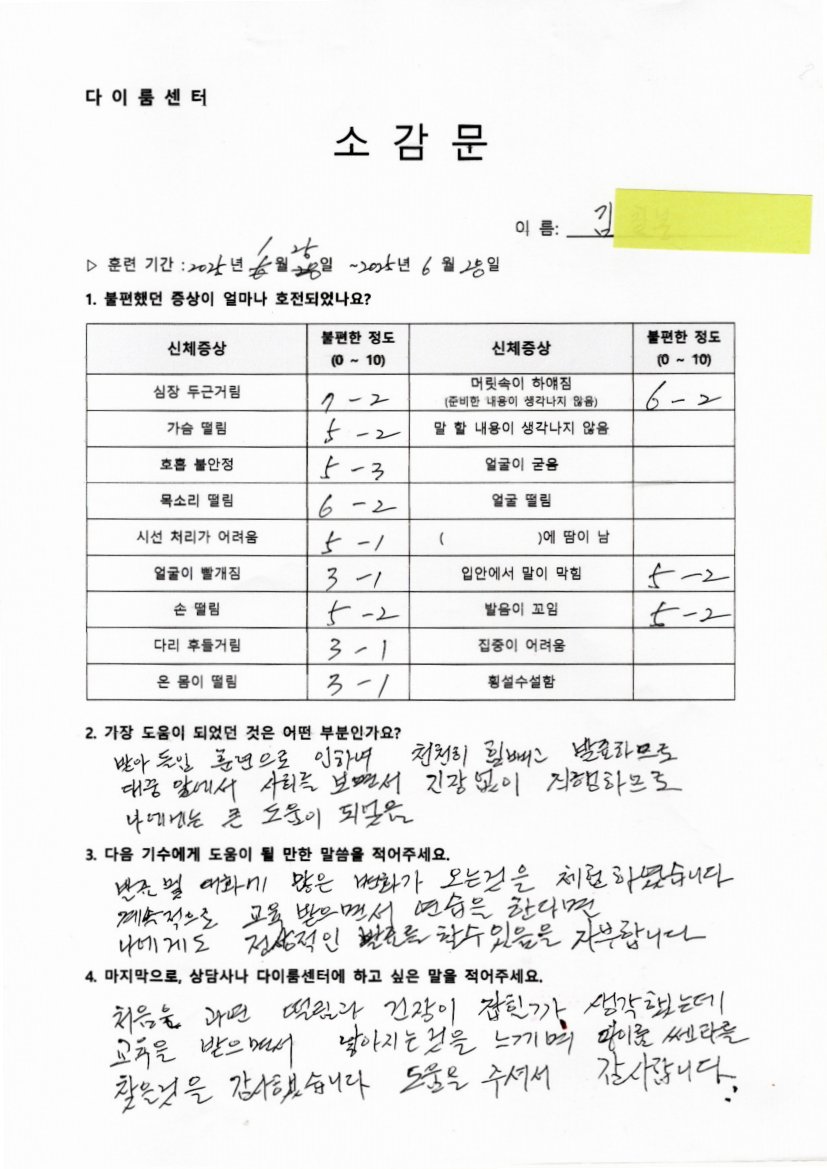 다이룸센터
소 감 문
이 름: 김
▷ 훈련 기간 : 2025년 1월 25일 ~2025년 6월 28일
1. 불편했던 증상이 얼마나 호전되었나요?
신체증상 불편한 정도 (0 ~ 10) 신체증상 불편한 정도 (0 ~ 10)
심장 두근거림 7 - 2 머릿속이 하얘짐 (준비한 내용이 생각나지 않음) 6 - 2
가슴 떨림 5 - 2 말 할 내용이 생각나지 않음
호흡 불안정 5 - 3 얼굴이 굳음
목소리 떨림 6 - 2 얼굴 떨림
시선 처리가 어려움 5 - 1 ( )에 땀이 남
얼굴이 빨개짐 3 - 1 입안에서 말이 막힘 5 - 2
손 떨림 5 - 2 발음이 꼬임 5 - 2
다리 후들거림 3 - 1 집중이 어려움
온 몸이 떨림 3 - 1 횡설수설함
2. 가장 도움이 되었던 것은 어떤 부분인가요?
훈련으로 인하여 천천히 힘빼고 발표하므로
대중 앞에서 사회를 보면서 긴장 없이 진행하므로
나에게는 큰 도움이 되었음
3. 다음 기수에게 도움이 될 만한 말씀을 적어주세요.
발표 및 대화에 많은 변화가 오는것을 체험하였습니다
계속적으로 교육 받으면서 연습을 한다면
나에게도 정상적인 발표를 할수 있음을 자부합니다
4. 마지막으로, 상담사나 다이룸센터에 하고 싶은 말을 적어주세요.
처음은 과연 떨림과 긴장이 잡힐가 생각했는데
교육을 받으면서 낳아지는것을 느끼며 다이룸 쎈타를
찾은것을 감사했습니다 도움을 주셔서 감사합니다.